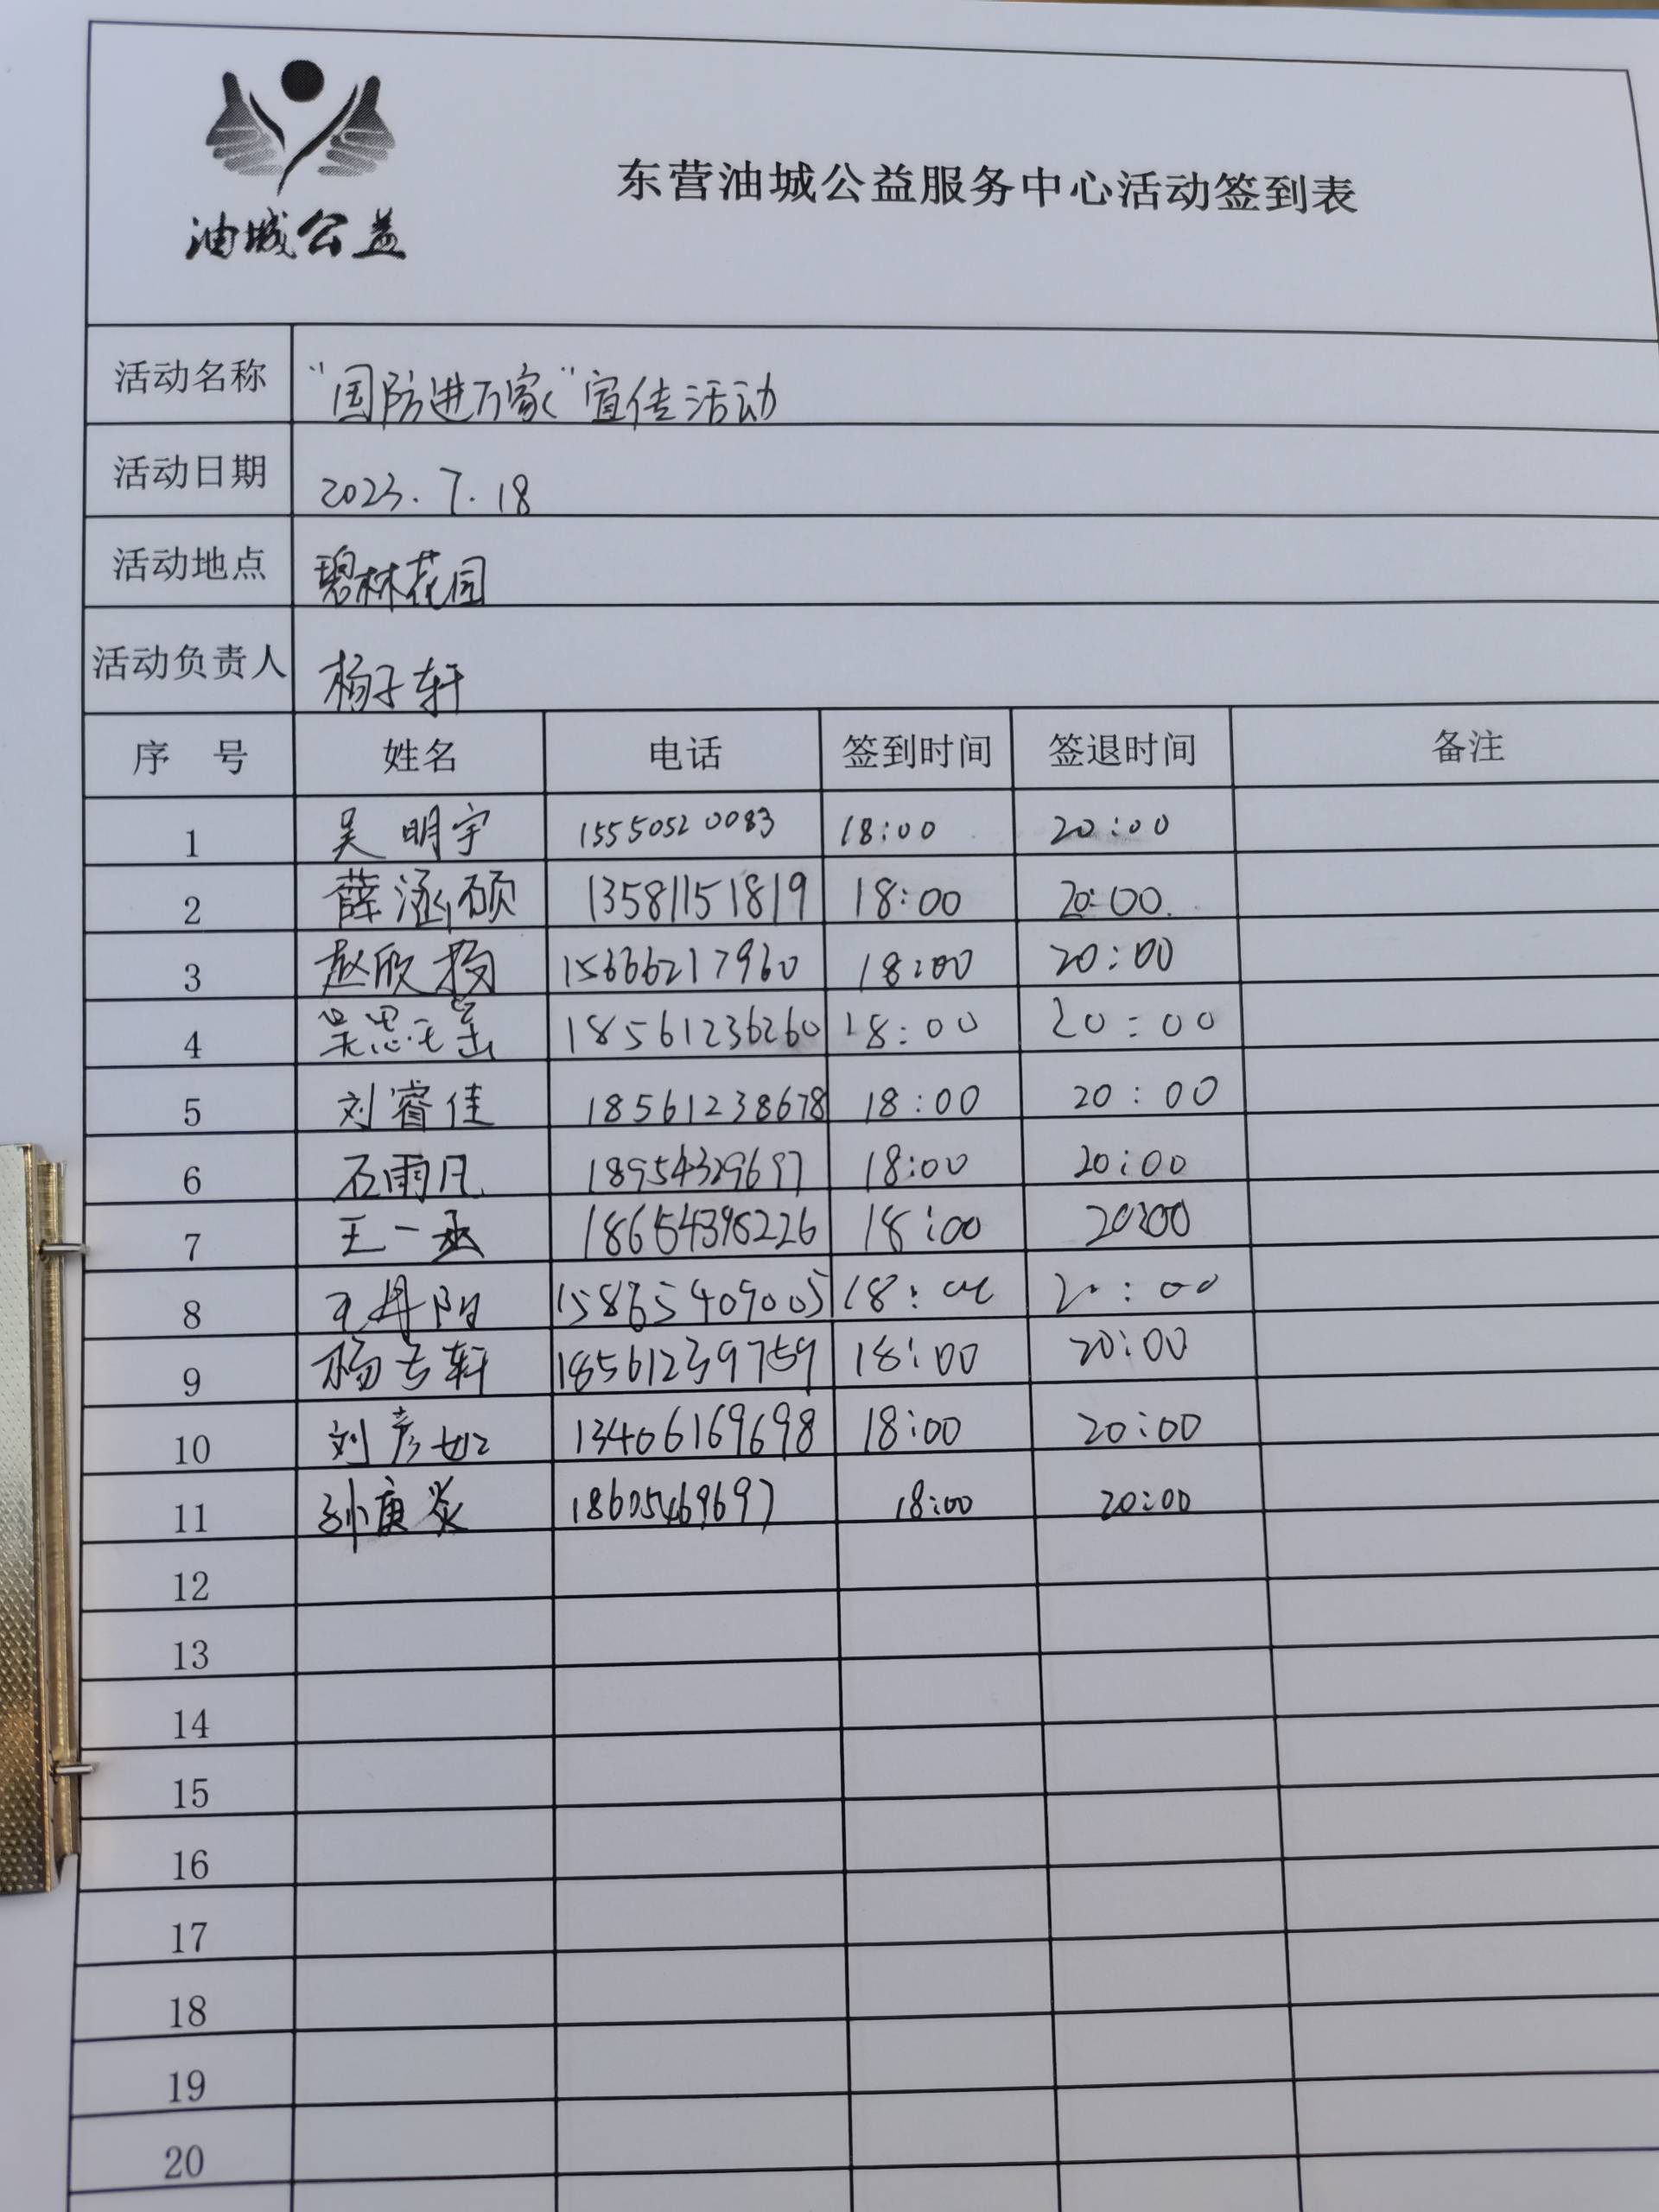 油城公益
东营油城公益服务中心活动签到表
活动名称 "国防进万家"宣传活动
活动日期 2023.7.18
活动地点 碧林花园
活动负责人 杨子轩
序 号 姓名 电话 签到时间 签退时间 备注
1 吴明宇 15550520083 18:00 20:00
2 薛涵硕 13581151819 18:00 20:00
3 赵欣杨 15666217960 18:00 20:00
4 吴思瑶 18561236260 18:00 20:00
5 刘睿佳 18561238678 18:00 20:00
6 石雨凡 18954329697 18:00 20:00
7 王一丞 18654396226 18:00 20:00
8 王丹阳 15865409005 18:00 20:00
9 杨子轩 18561239759 18:00 20:00
10 刘彦如 13406169698 18:00 20:00
11 孙庚 18605469697 18:00 20:00
12
13
14
15
16
17
18
19
20